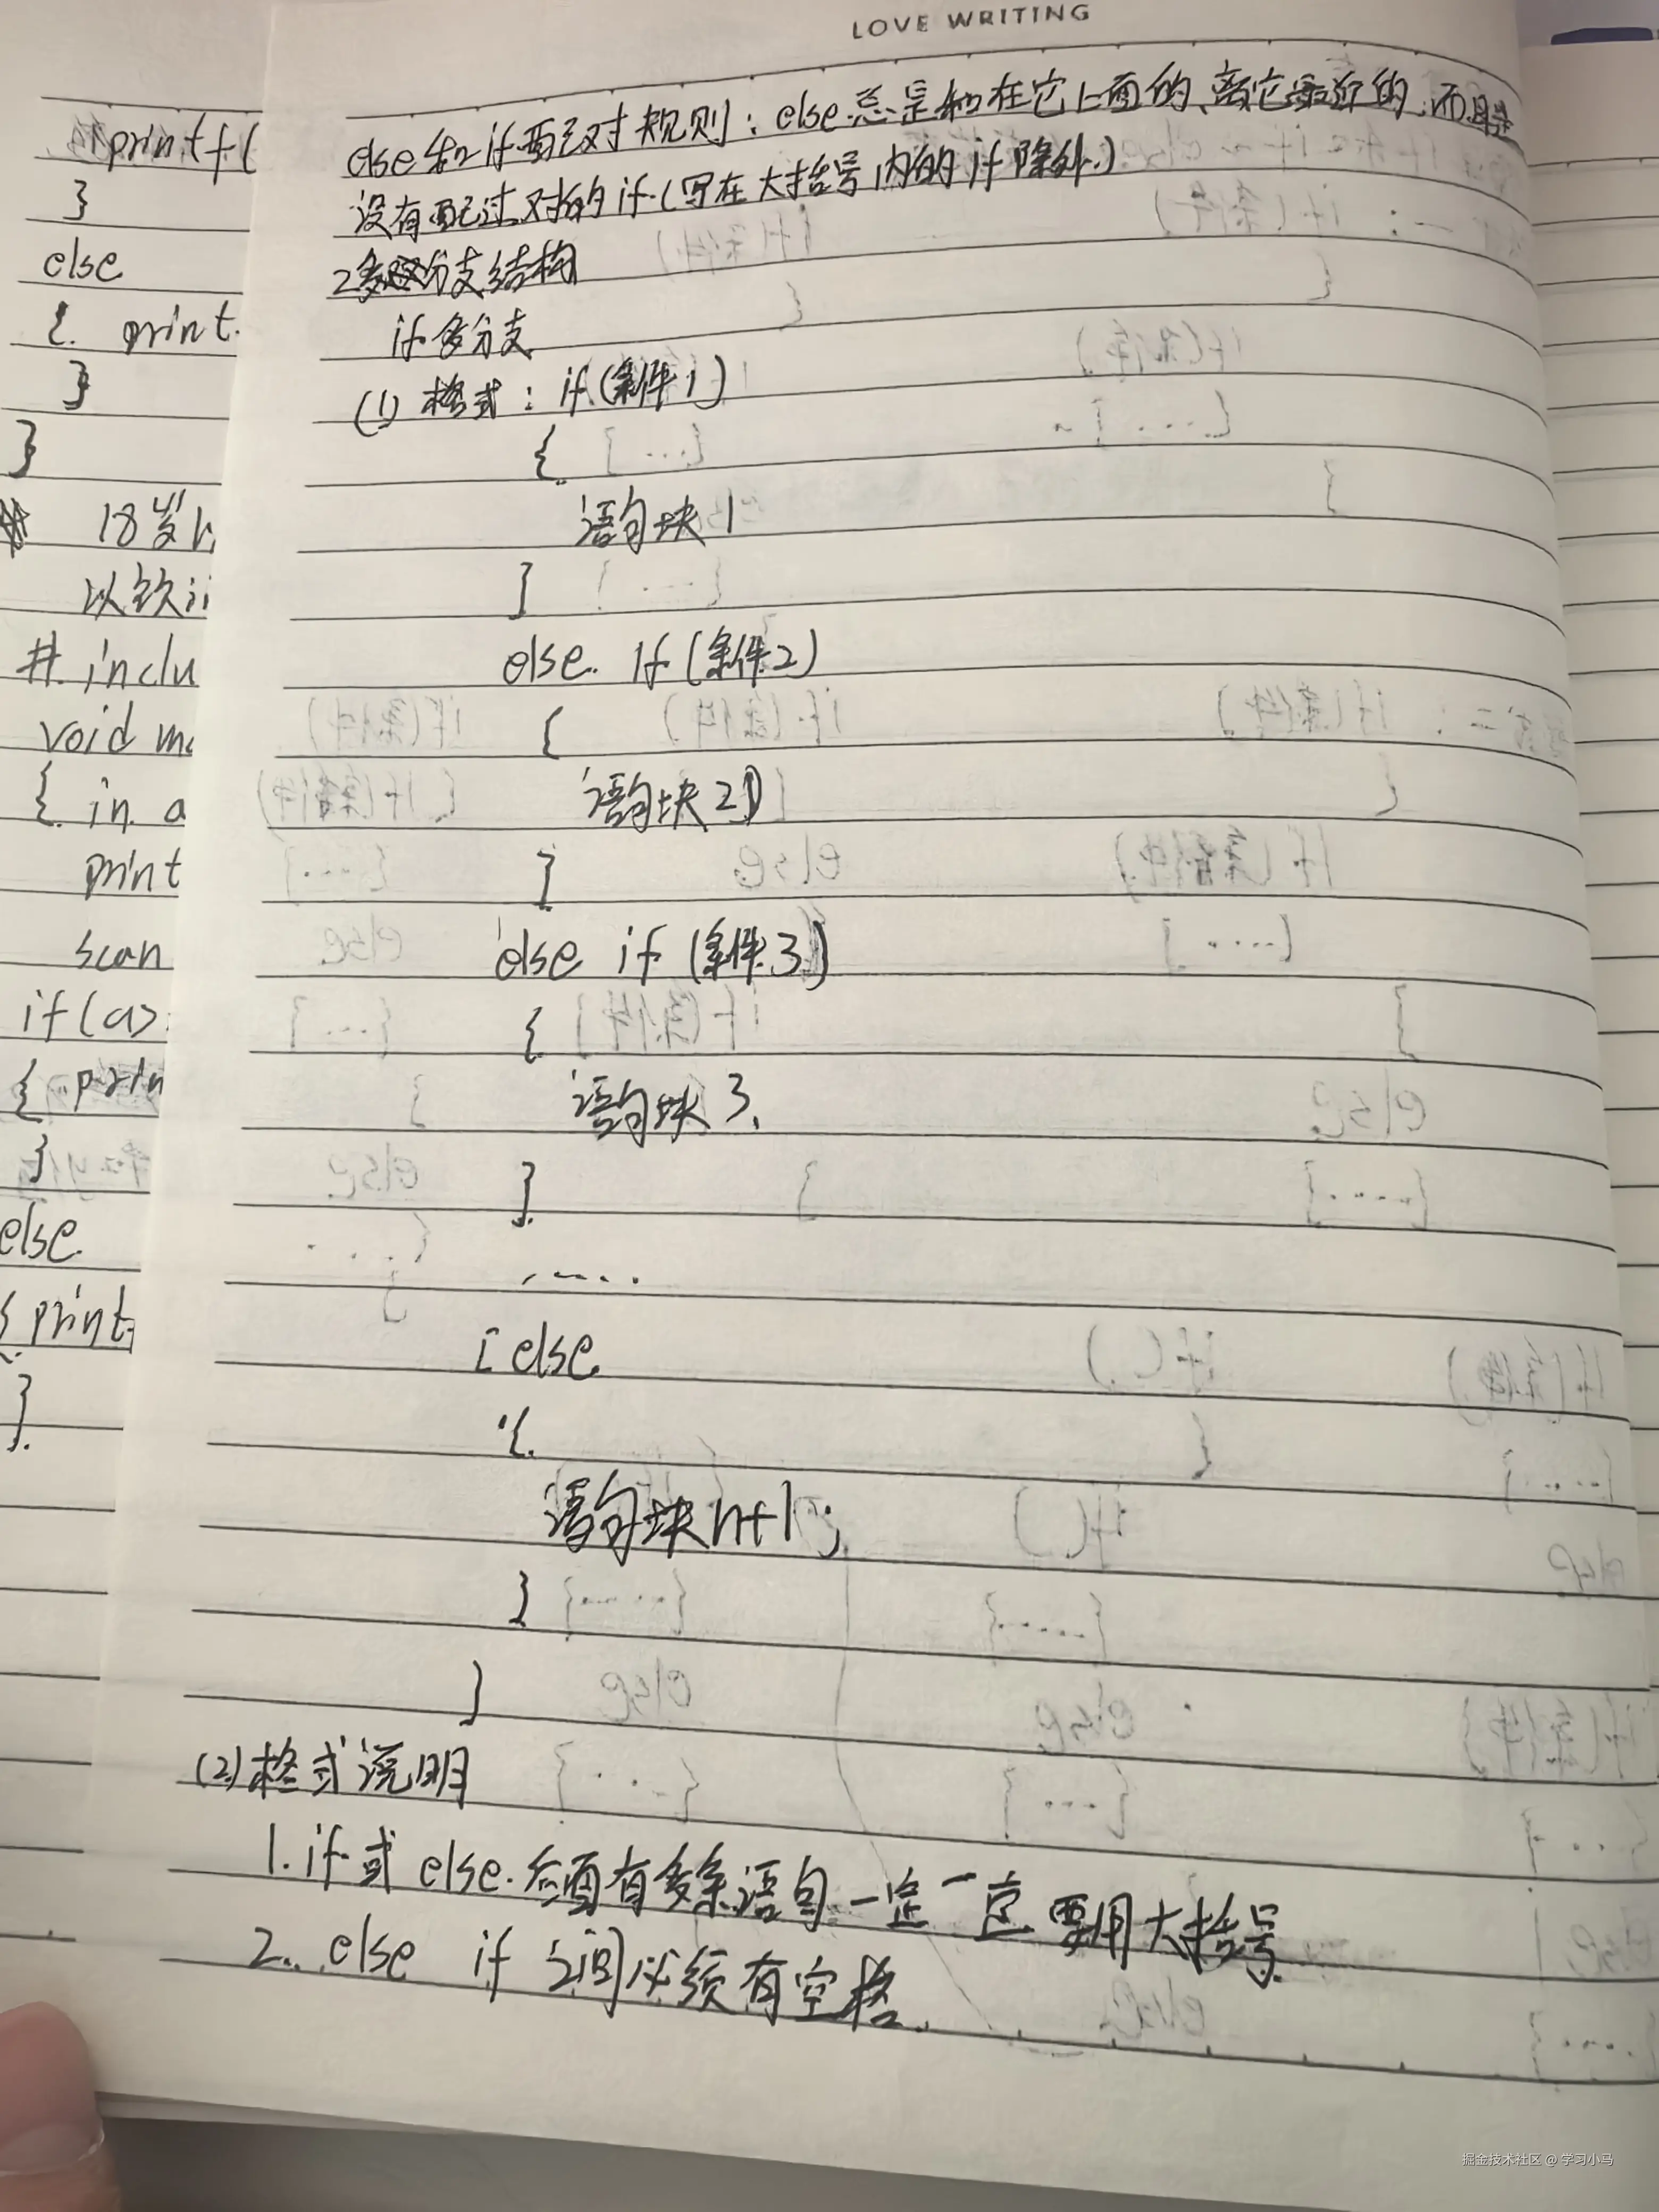 LOVE WRITING
printf(
}
else
{ print
}
}
18岁以
以饮
# inclu
void ma
{ in a
print
scan
if(a>
{ prin
}
else
{ print
}
else和if配对规则：else总是和在它上面的、离它最近的而且
没有配过对的if(写在大括号内的if除外)
2多分支结构
if多分支
(1) 格式：if(条件1)
{
语句块1
}
else if(条件2)
{
语句块2
}
else if (条件3)
{
语句块3
}
......
[else
{
语句块n+1;
}
]
(2)格式说明
1.if或else后面有多条语句一定一定要用大括号
2. else if 之间必须有空格.
掘金技术社区 @ 学习小马